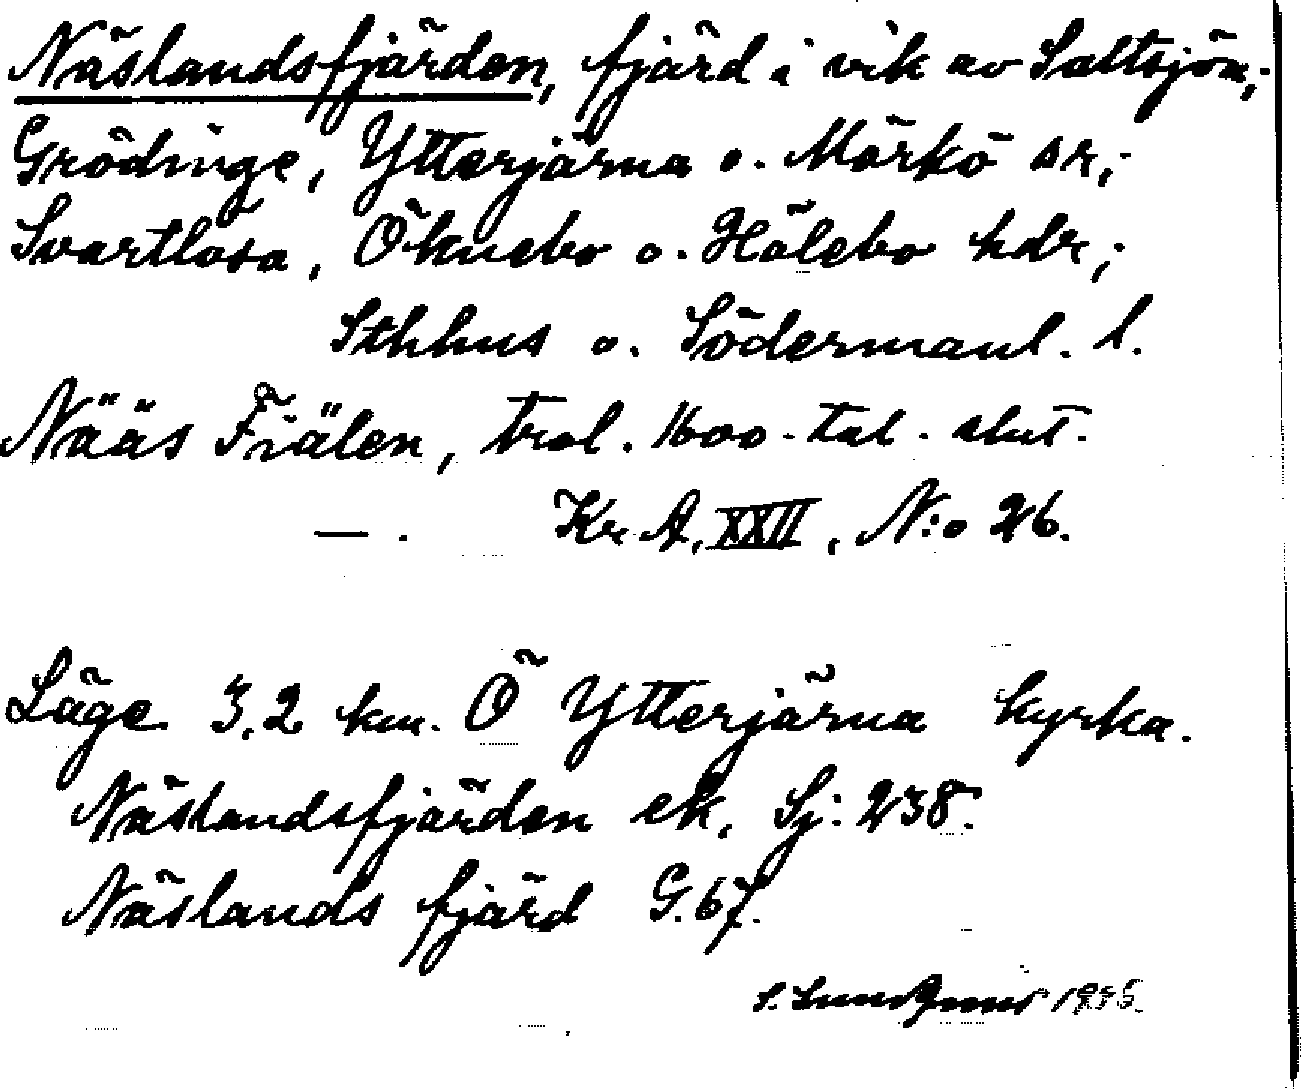 Näslandsfjärden, fjärd i vik av Saltsjön;
Grödinge, Ytterjärna o. Mörkö sr;
Svartlösa, Öknebo o. Hölebo hdr;
Sthlms o. Södermanl. l.
Nääs Fiälen, trol. 1600-tal. slut.
— . Kr. A. XXII, N:o 26.
Läge 3,2 km. Ö Ytterjärna kyrka.
Näslandsfjärden ek. Sj: 238.
Näslands fjärd G. 67.
S. 1935.